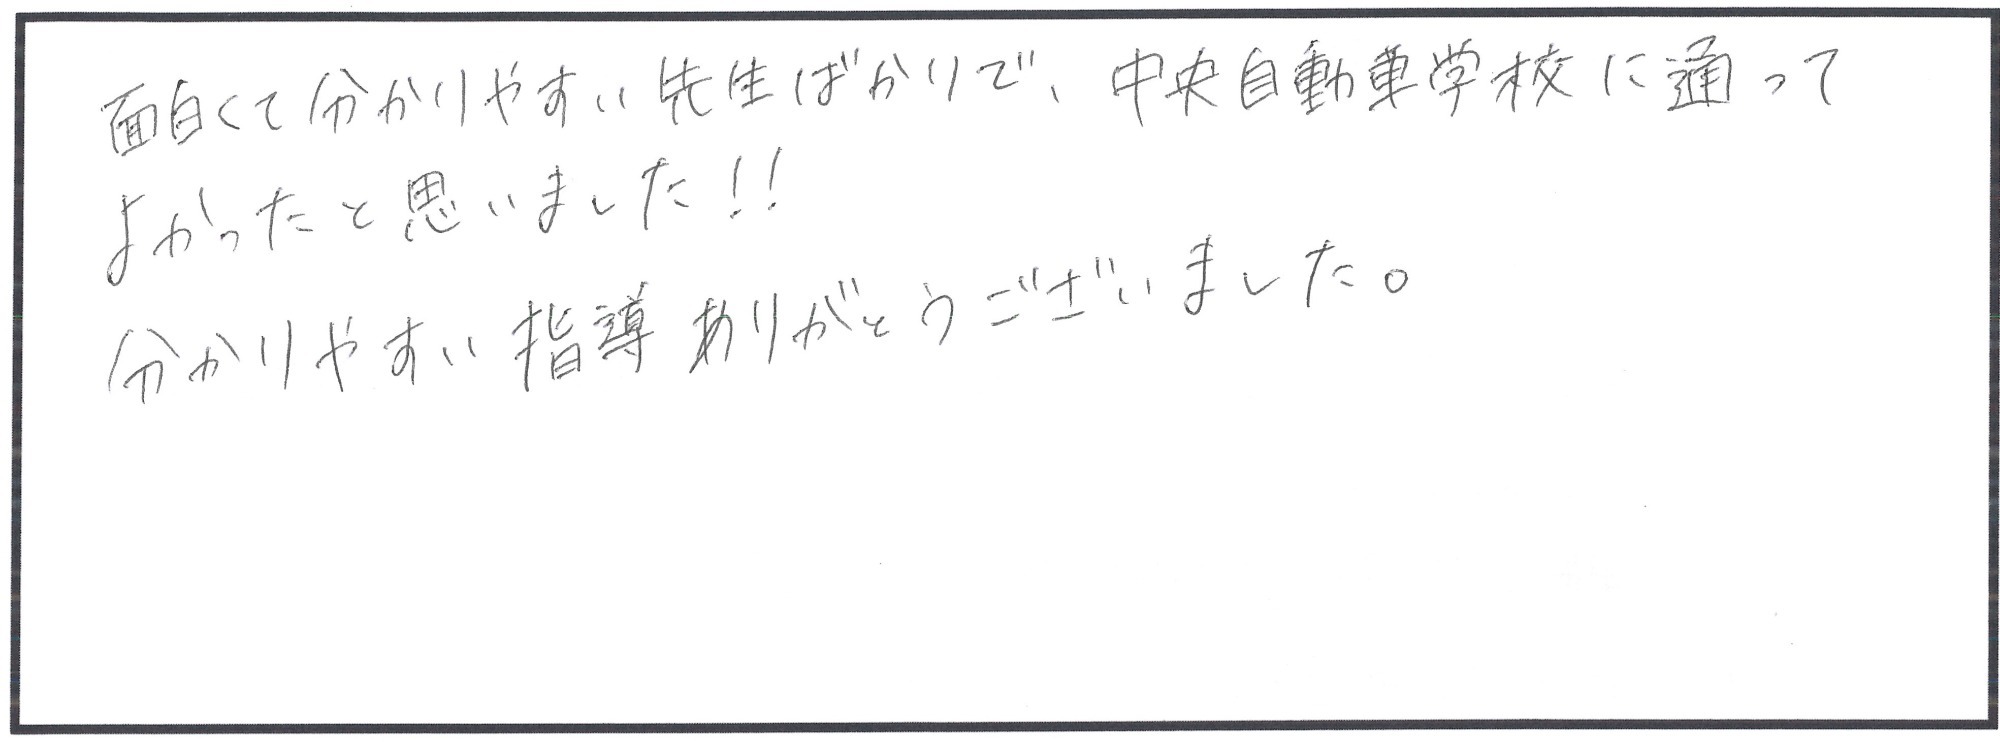 面白くて分かりやすい先生ばかりで、中央自動車学校に通って
よかったと思いました!!
分かりやすい指導ありがとうございました。